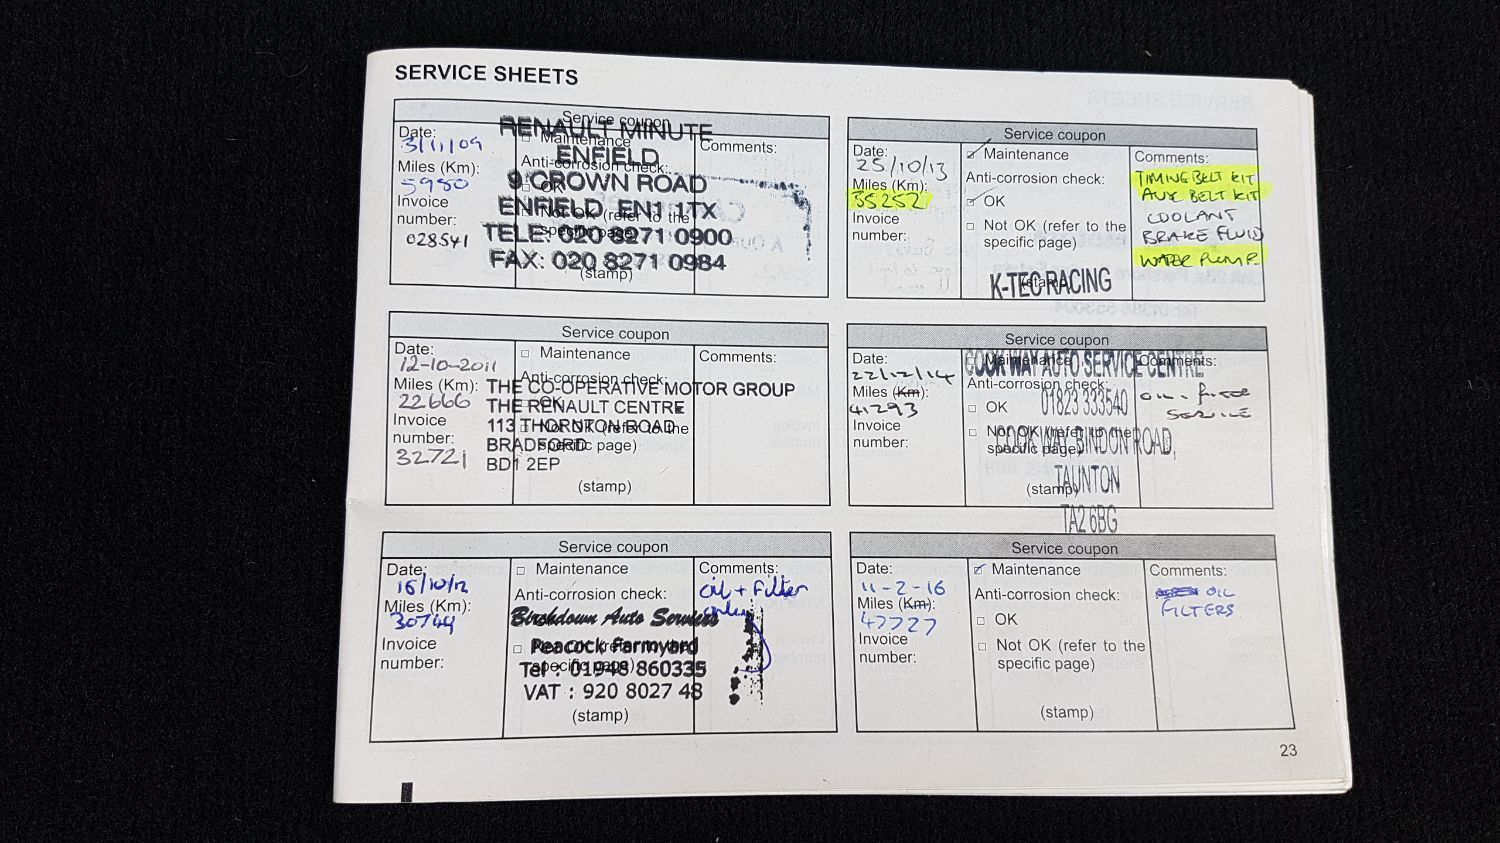 SERVICE SHEETS
Service coupon
Date:
3/11/09
Miles (Km):
5980
Invoice
number:
028541
Maintenance
Anti-corrosion check:
OK
Not OK (refer to the
specific page)
(stamp)
Comments:
RENAULT MINUTE
ENFIELD
9 CROWN ROAD
ENFIELD EN1 1TX
TELE: 020 8271 0900
FAX: 020 8271 0984
Service coupon
Date:
12-10-2011
Miles (Km):
22666
Invoice
number:
32721
Maintenance
Anti-corrosion check:
OK
Not OK (refer to the
specific page)
(stamp)
Comments:
THE CO-OPERATIVE MOTOR GROUP
THE RENAULT CENTRE
113 THORNTON ROAD
BRADFORD
BD1 2EP
Service coupon
Date:
16/10/12
Miles (Km):
30744
Invoice
number:
Maintenance
Anti-corrosion check:
specific page)
(stamp)
Comments:
oil + Filter
only
Birchdown Auto Services
Peacock Farmyard
Tel : 01948 860335
VAT : 920 8027 48
Service coupon
Date:
25/10/13
Miles (Km):
35252
Invoice
number:
Maintenance
Anti-corrosion check:
OK
Not OK (refer to the
specific page)
(stamp)
Comments:
TIMING BELT KIT
AUX BELT KIT
COOLANT
BRAKE FLUID
WATER PUMP
K-TEC RACING
Service coupon
Date:
22/12/14
Miles (Km):
41293
Invoice
number:
Maintenance
Anti-corrosion check:
OK
Not OK (refer to the
specific page)
(stamp)
Comments:
OIL + FILTER
SERVICE
COOK WAY AUTO SERVICE CENTRE
01823 333540
COOK WAY, BINDON ROAD,
TAUNTON
TA2 6BG
Service coupon
Date:
11-2-16
Miles (Km):
47727
Invoice
number:
Maintenance
Anti-corrosion check:
OK
Not OK (refer to the
specific page)
(stamp)
Comments:
OIL
FILTERS
23